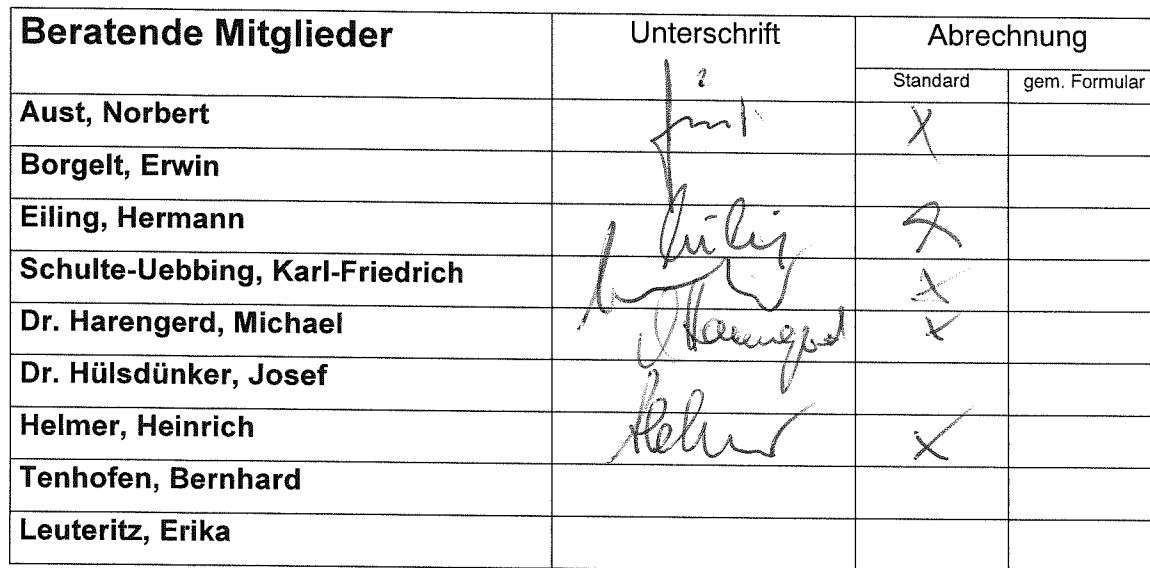 Beratende Mitglieder Unterschrift Abrechnung
Standard gem. Formular
Aust, Norbert X
Borgelt, Erwin
Eiling, Hermann Eiling X
Schulte-Uebbing, Karl-Friedrich X
Dr. Harengerd, Michael Harengerd X
Dr. Hülsdünker, Josef
Helmer, Heinrich Helmer X
Tenhofen, Bernhard
Leuteritz, Erika